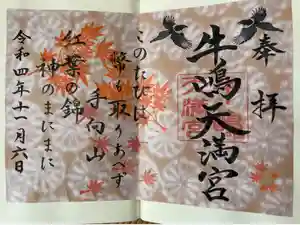 奉拝
牛嶋天満宮
このたびは
幣も取りあへず
手向山
紅葉の錦
神のまにまに
令和四年十一月六日